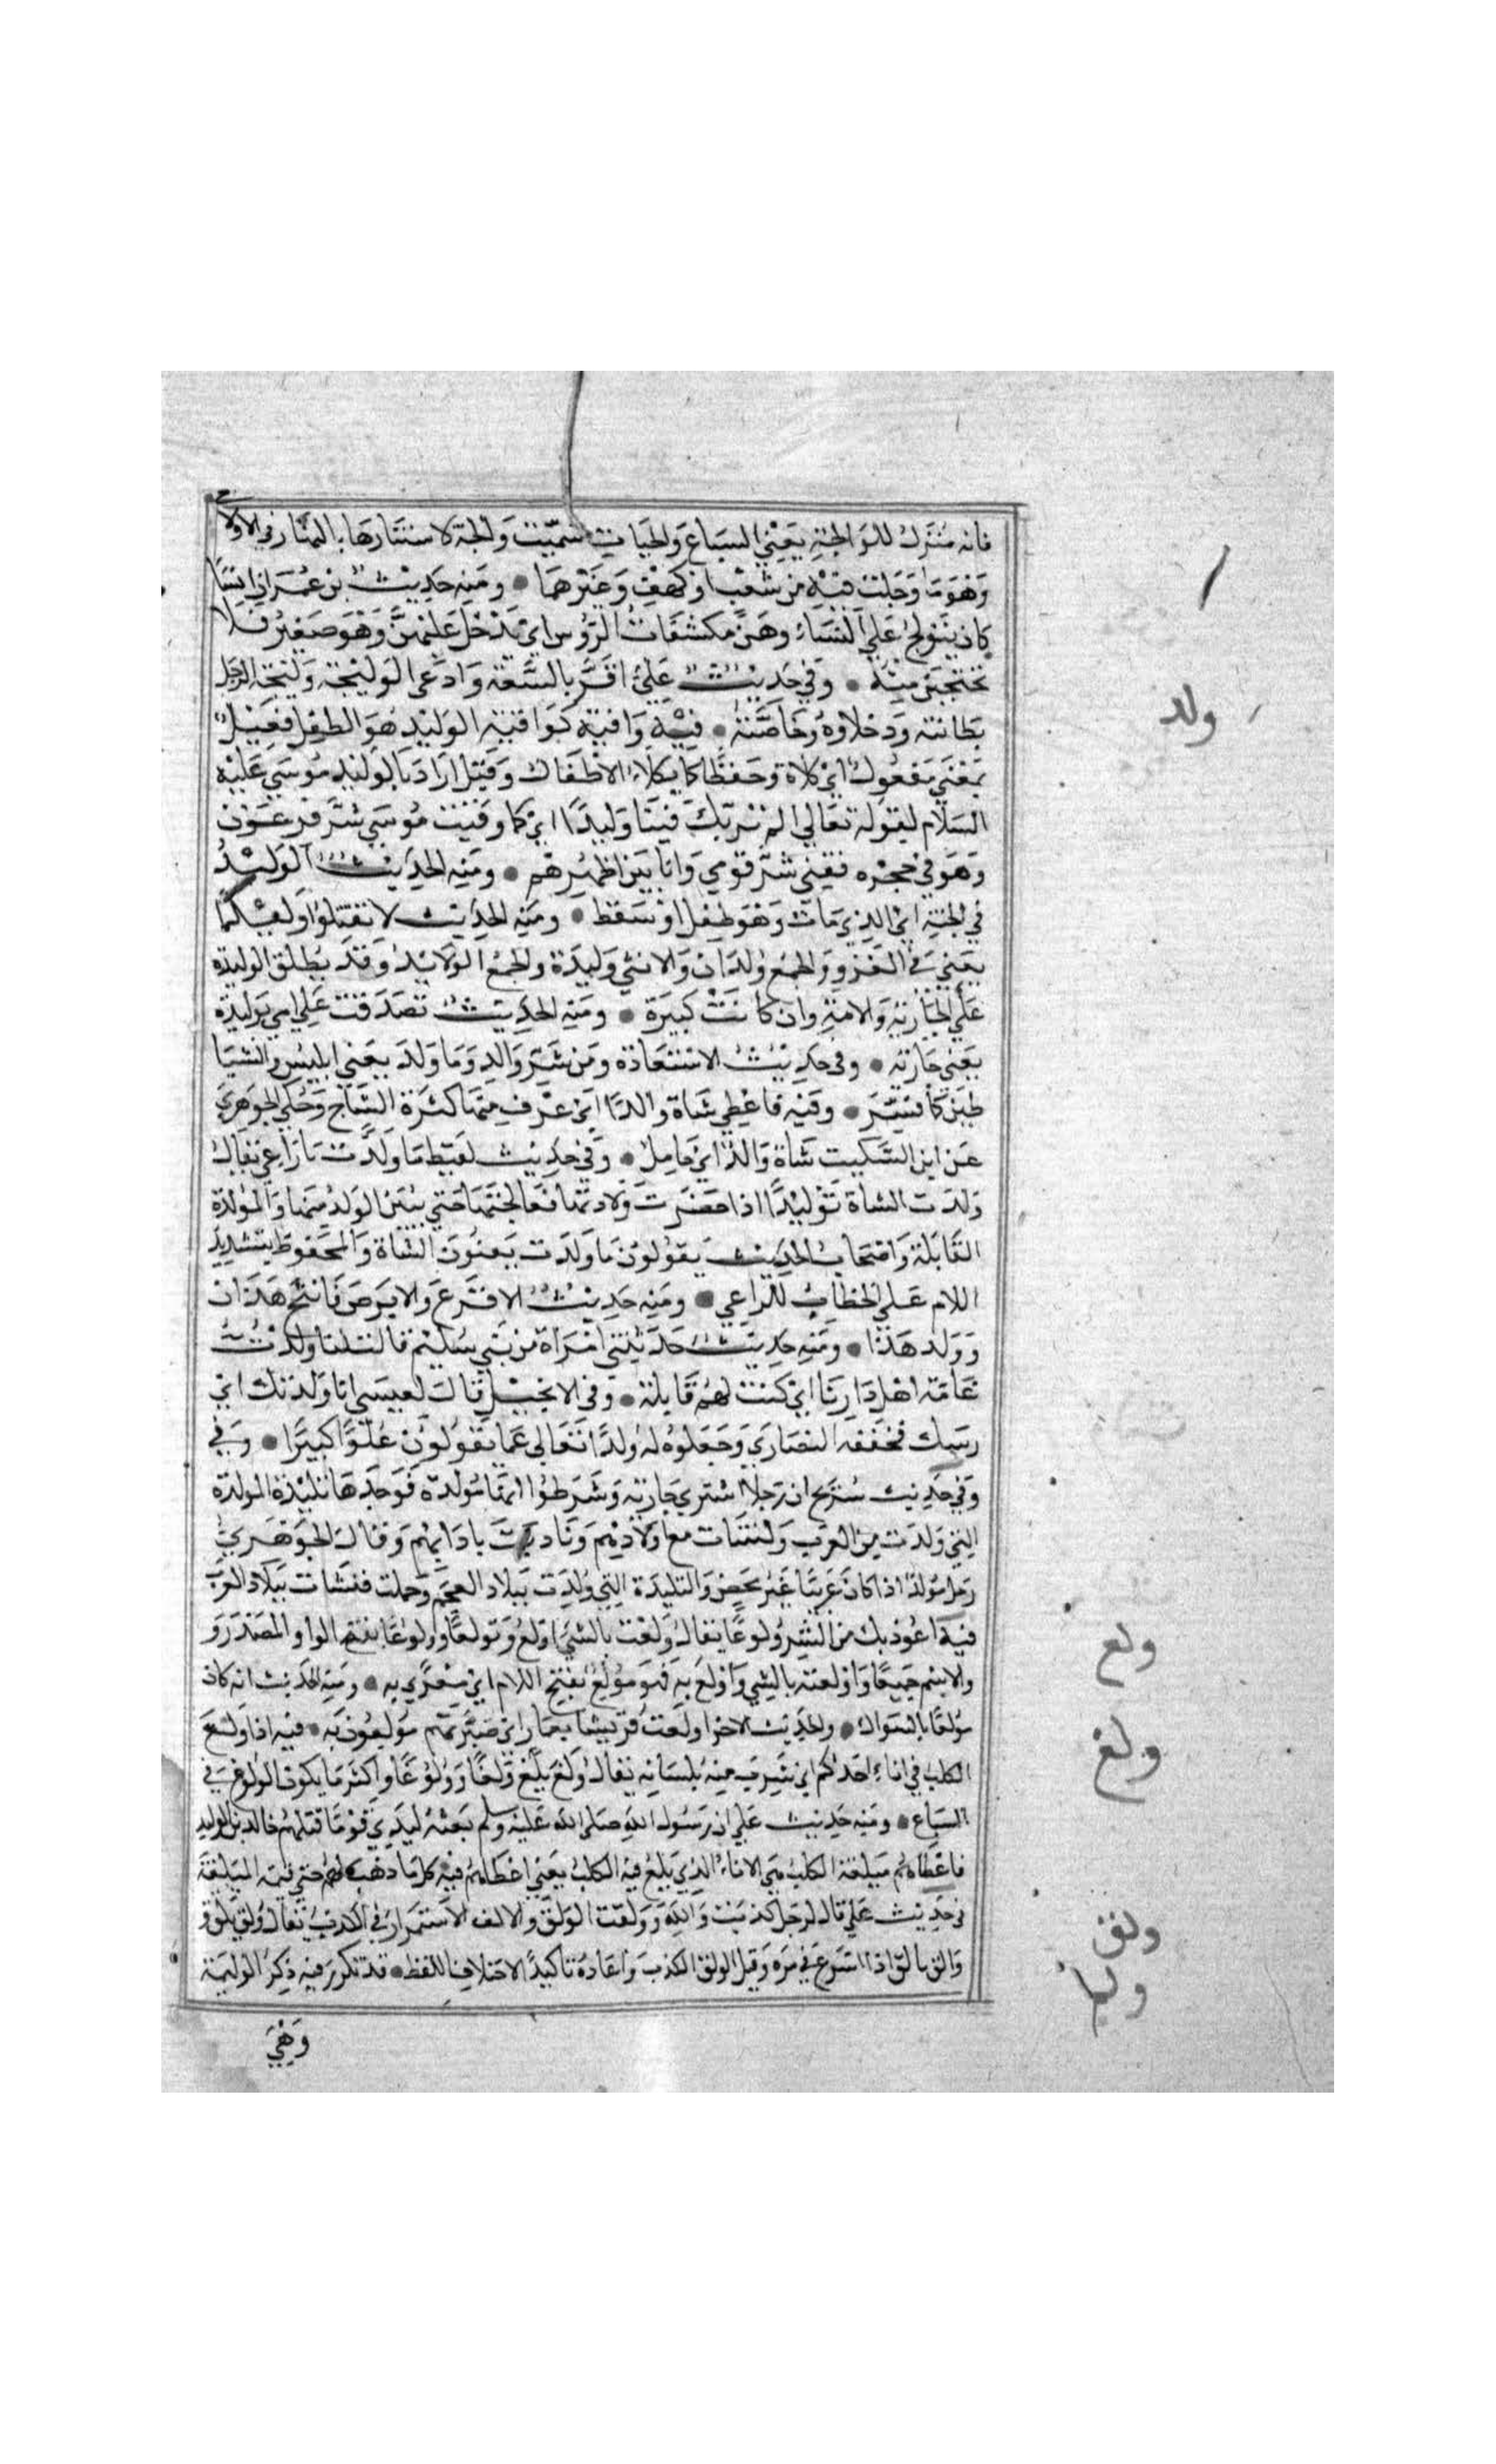 فانه منزل للوالجة يعني السباع والحيات سميت والجة لاستتارها بالنهار في الاولا
وهو ما ولجت فيه من شعب او كهف وغيرهما • ومنه حديث بن عمر ان انسا
كان يتولج على النساء وهن مكشفات الرؤس اي يدخل عليهن وهو صغير فلا
تحتجبن منه • وفي حديث علي اقر بالبيعة وادعى الوليجة وليجة الرجل
بطانته ودخلاوه وخاصته • فيه واقية كواقية الوليد هو الطفل فعيل
بمعنى مفعول اي كلاة وحفظا كما يكلاء الاطفال وقيل اراد بالوليد موسى عليه
السلام لقوله تعالى الم نربك فينا وليدا اي كما وقيت موسى شر فرعون
وهو في حجره فقني شر قومي وانا بين اظهرهم • ومنه الحديث الوليد
في الجنة اي الذي مات وهو طفل او سقط • ومنه الحديث لا تقتلوا وليدا
يعني في الغزو والجمع ولدان والانثى وليدة والجمع الولايد وقد يطلق الوليدة
على الجارية والامة وان كانت كبيرة • ومنه الحديث تصدقت على امي بوليدة
يعني جارية • وفي حديث الاستعاذة ومن شر والد وما ولد يعني ابليس والشيا
طين كما فسر • وفيه فاعطي شاة والدا اي عرف منها كثرة النتاج وحكى الجوهري
عن ابن السكيت شاة والد اي حامل • وفي حديث لقيط ما ولدت يا راعي يقال
ولدت الشاة توليدا اذا حضرت ولادتها فعالجتها حتى يبين الولد منها والمولدة
القابلة واصحاب الحديث يقولون ما ولدت يعنون الشاة والمحفوظ بتشديد
اللام على الخطاب للراعي • ومنه حديث الاقرع والابرص فانتج هذان
وولد هذا • ومنه حديث حدثتني امراة من بني سليم قالت انا ولدت
عامة اهل دارنا اي كنت لهم قابلة • وفي الانجيل قال لعيسى انا ولدتك اي
ربيتك فخففه النصارى وجعلوه له ولدا تعالى عما يقولون علوا كبيرا • وفي
وفي حديث شريح ان رجلا اشترى جارية وشرطوا انها مولدة فوجدها تليدة المولدة
التي ولدت بين العرب ونشات مع اولادهم وتادبت بادابهم وقال الجوهري
رجل مولد اذا كان عربيا غير محض والتليدة التي ولدت ببلاد العجم وحملت فنشات ببلاد العرب
فيه اعوذ بك من الشر ولوعا يقال ولعت بالشي اولع وتولعا وولوعا بفتح الواو المصدر و
والاسم جميعا واولعته بالشي واولع به فهو مولع بفتح اللام اي مغرى به • ومنه الحديث انه كان
مولعا بالسواك • والحديث الاخر اولعت قريشا بعمار اي صيرتهم مولعون به • فيه اذا ولغ
الكلب في اناء احدكم اي شرب منه بلسانه يقال ولغ يلغ ولغا وولوغا واكثر ما يكون الولوغ في
السباع • ومنه حديث علي ان رسول الله صلى الله عليه وسلم بعثه ليدي قوما قتلهم خالد بن الوليد
فاعطاهم ميلغة الكلب هي الاناء الذي يلغ فيه الكلب يعني اعطاهم قيمة كل ما ذهب لهم حتى قيمة الميلغة
في حديث علي قال لرجل كذبت والله وولقت الولق والالق الاستمرار في الكذب يقال ولق يلق و
والق يالق اذا اسرع في مره وقيل الولق الكذب واعاده تاكيدا لاختلاف اللفظ • قد تكرر فيه ذكر الوليمة
وهي
ولد
ولع
ولغ
ولق
ولم